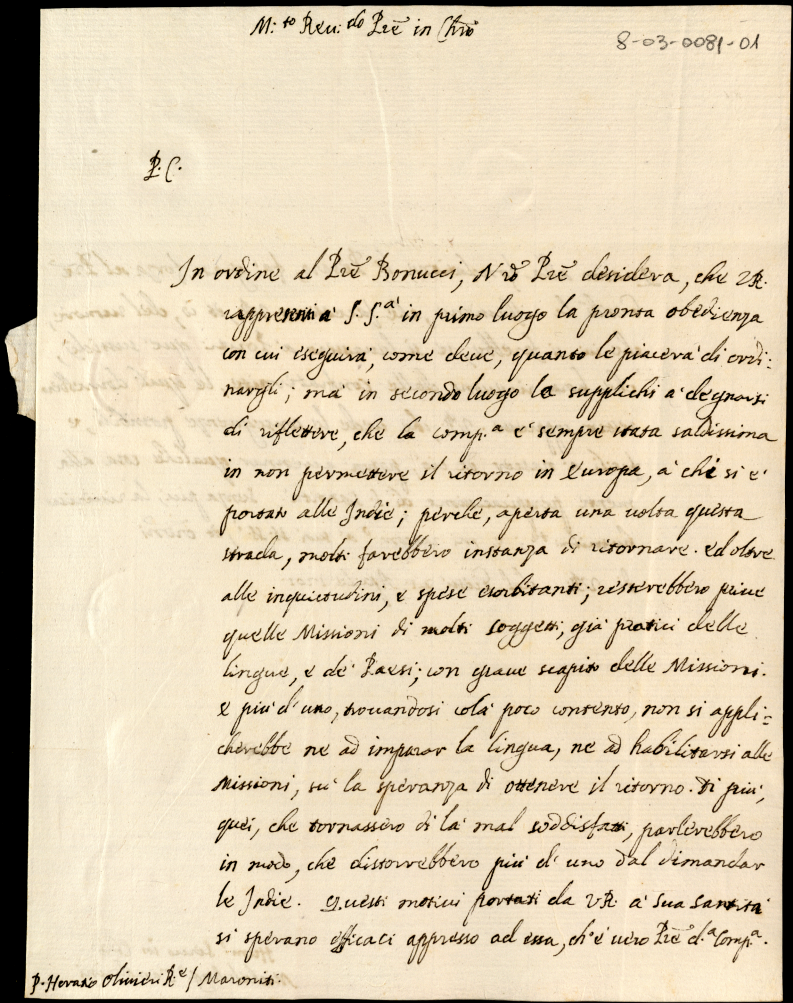 M:to Reu:do Pre in Chro
8-03-0081-01
P. C.
In ordine al Pre Bonucci, Nro Pre desidera, che VR.
rappresenti à S. S.a in primo luogo la pronta obedienza
con cui eseguirà, come deue, quanto le piacerà di ordi:
nargli; mà in secondo luogo la supplichi à degnarsi
di riflettere, che la comp.a è sempre stata saldissima
in non permettere il ritorno in Europa, à chi si è
portato alle Indie; perche, aperta una uolta questa
strada, molti farebbero instanza di ritornare. ed oltre
alle inquietudini, e spese esorbitanti; resterebbero priue
quelle Missioni di molti soggetti, già pratici delle
lingue, e de' Paesi; con graue scapito delle Missioni.
e più d'uno, trouandosi colà poco contento, non si appli:
cherebbe ne ad imparar la lingua, ne ad habilitarsi alle
Missioni, sù la speranza di ottenere il ritorno. Di più,
quei, che tornassero di là mal soddisfatti, parlerebbero
in modo, che distorrebbero più d'uno dal dimandar
le Indie. Questi motiui portati da VR. à Sua Santità
si sperano efficaci appresso ad essa, ch'è uero Pre d.a Comp.a.
P. Horatio Oliuieri Re / Maroniti.